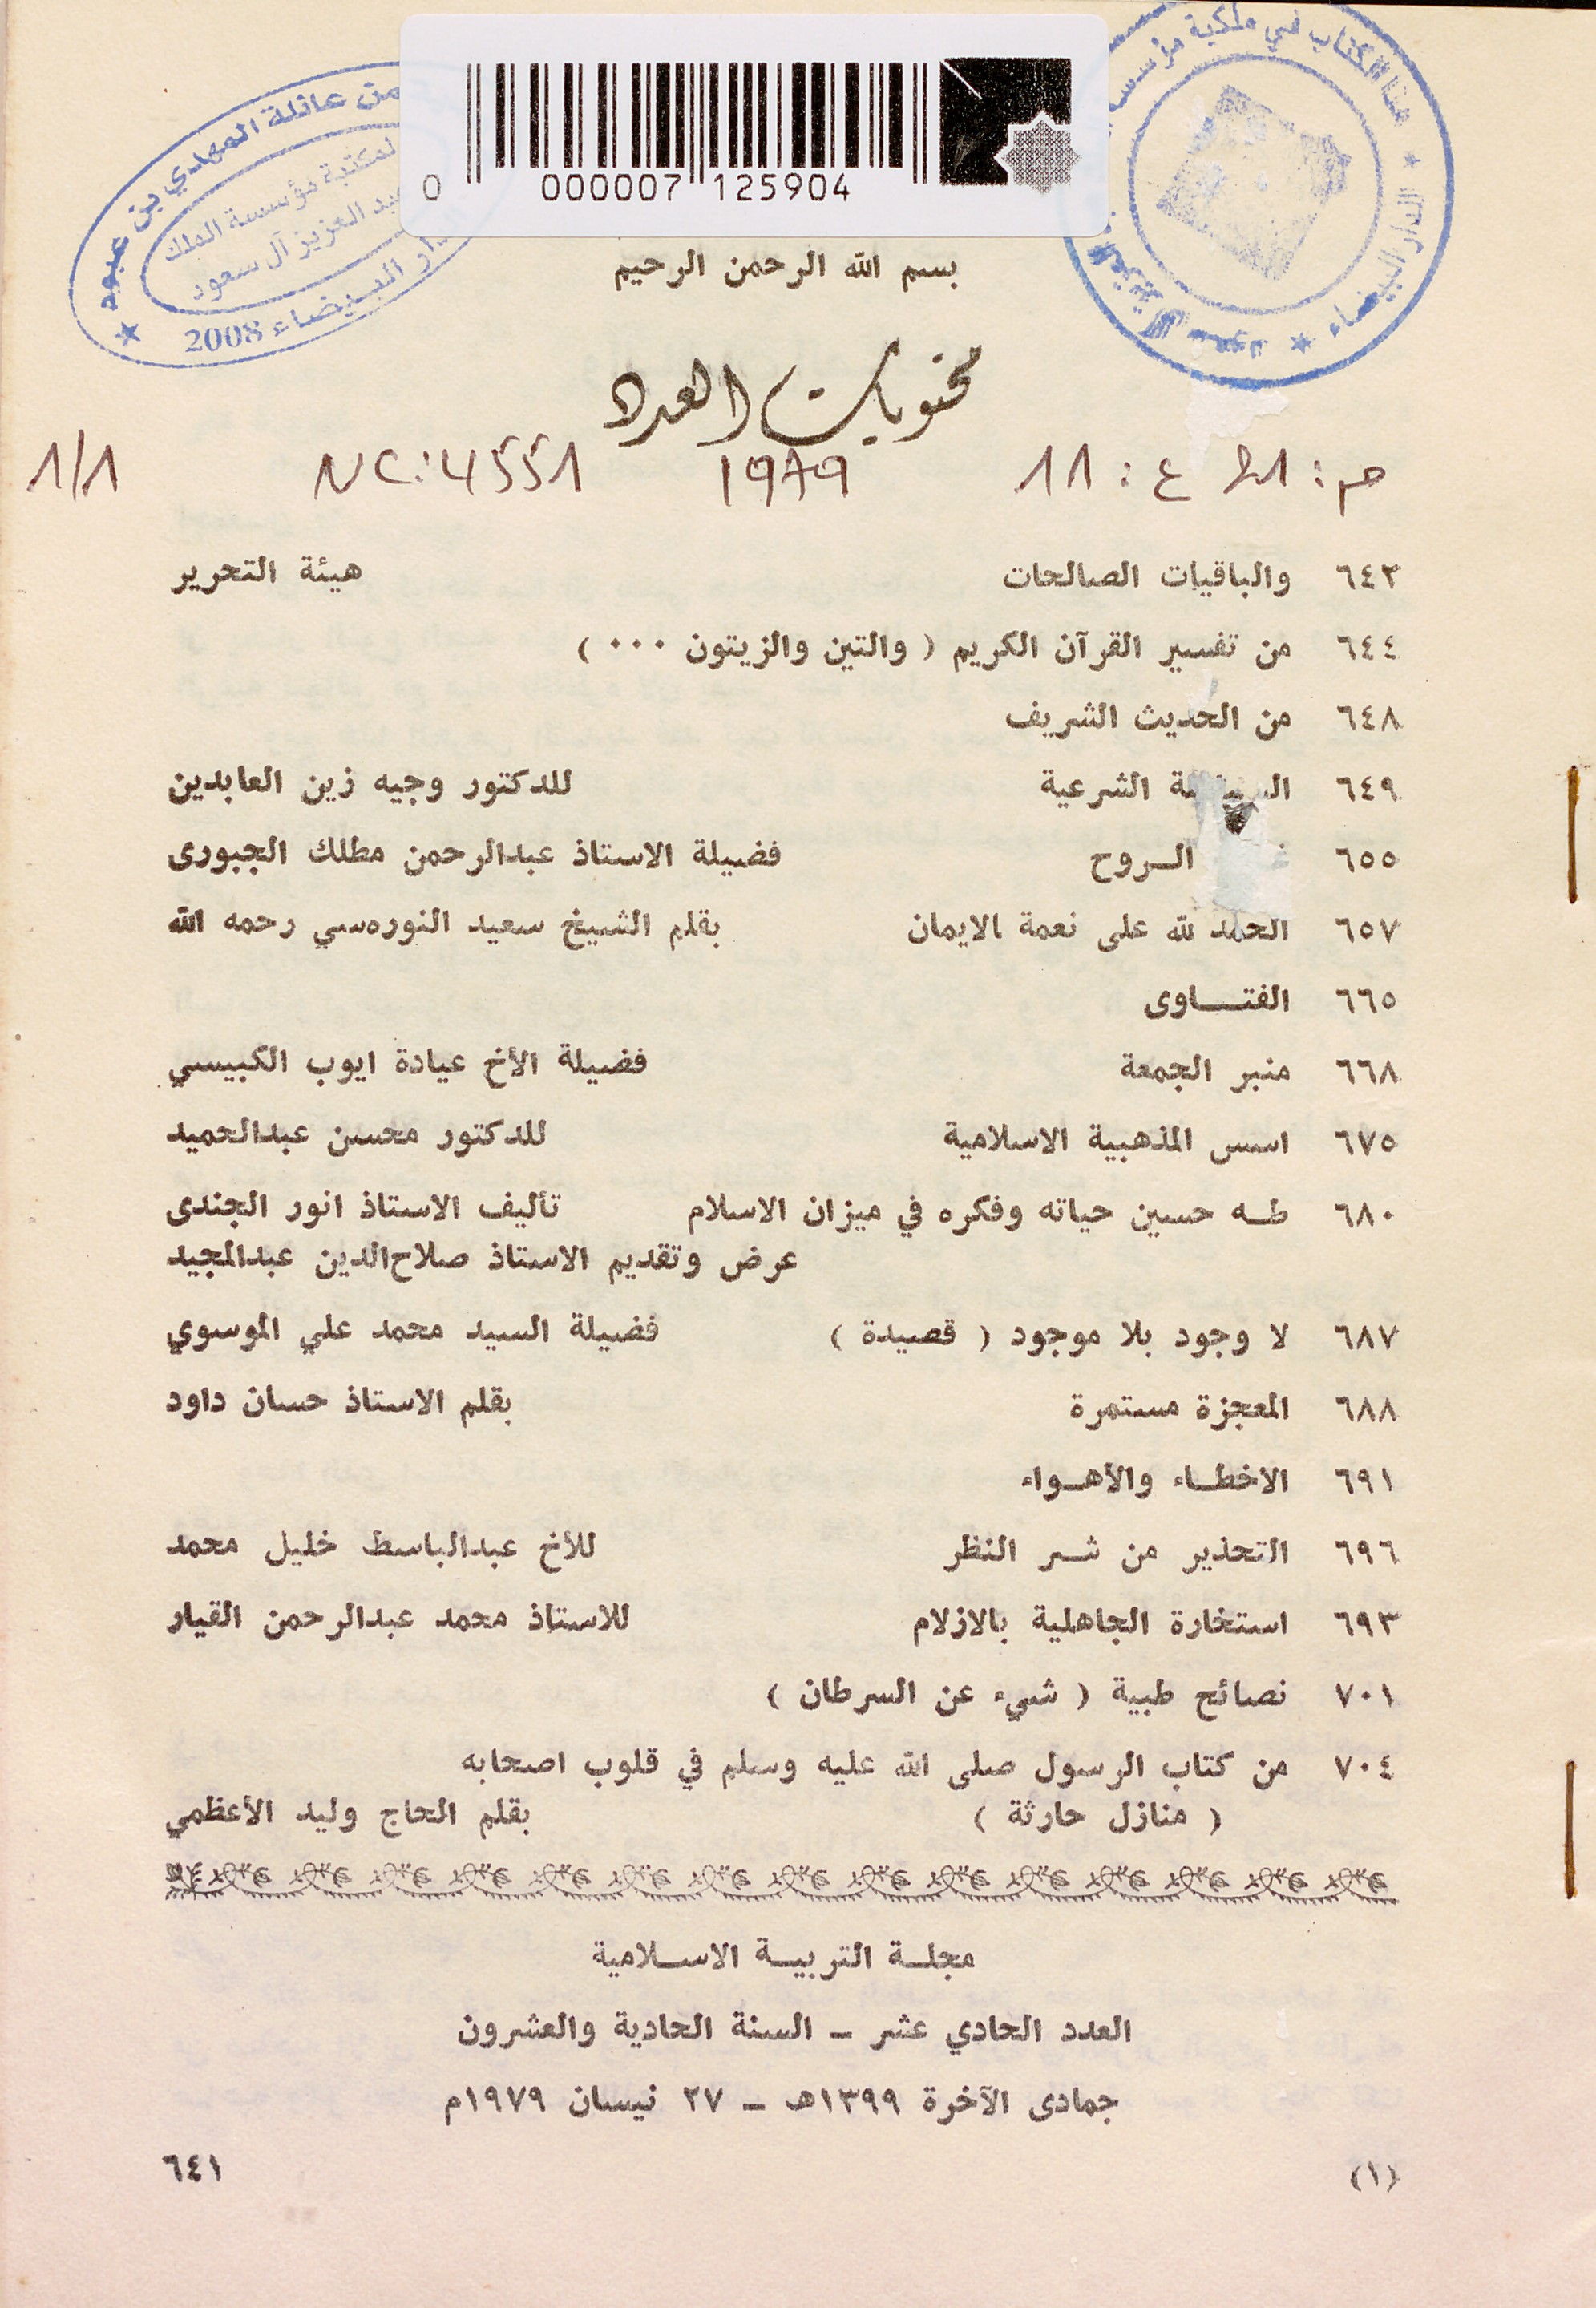 من عائلة المهدي بن عبود
لمكتبة مؤسسة الملك
عبد العزيز آل سعود
البيضاء 2008
هذا الكتاب في ملكية مؤسسة
الدار البيضاء
آل سعود
0 000007 125904
بسم الله الرحمن الرحيم
محتويات العدد
م : 21 ع : 11 1979 NC: 4551 1/1
٦٤٣ والباقيات الصالحات هيئة التحرير
٦٤٤ من تفسير القرآن الكريم ( والتين والزيتون ٠٠٠ )
٦٤٨ من الحديث الشريف
٦٤٩ الشرعية للدكتور وجيه زين العابدين
٦٥٥ الـــروح فضيلة الاستاذ عبدالرحمن مطلك الجبورى
٦٥٧ الحمد لله على نعمة الايمان بقلم الشيخ سعيد النورەسي رحمه الله
٦٦٥ الفتـــــاوى
٦٦٨ منبر الجمعة فضيلة الأخ عيادة ايوب الكبيسي
٦٧٥ اسس المذهبية الاسلامية للدكتور محسن عبدالحميد
٦٨٠ طـه حسين حياته وفكره في ميزان الاسلام تأليف الاستاذ انور الجندى
عرض وتقديم الاستاذ صلاح‌الدين عبدالمجيد
٦٨٧ لا وجود بلا موجود ( قصيدة ) فضيلة السيد محمد علي الموسوي
٦٨٨ المعجزة مستمرة بقلم الاستاذ حسان داود
٦٩١ الاخطـاء والأهـواء
٦٩٦ التحذير من شـر النظر للأخ عبدالباسط خليل محمد
٦٩٣ استخارة الجاهلية بالازلام للاستاذ محمد عبدالرحمن القيار
٧٠١ نصائح طبية ( شيء عن السرطان )
٧٠٤ من كتاب الرسول صلى الله عليه وسلم في قلوب اصحابه
( منازل حارثة ) بقلم الحاج وليد الأعظمي
مجلـة التربيـة الاسـلامية
العدد الحادي عشر ــ السنة الحادية والعشرون
جمادى الآخرة ١٣٩٩هـ ــ ٢٧ نيسان ١٩٧٩م
(١) ٦٤١